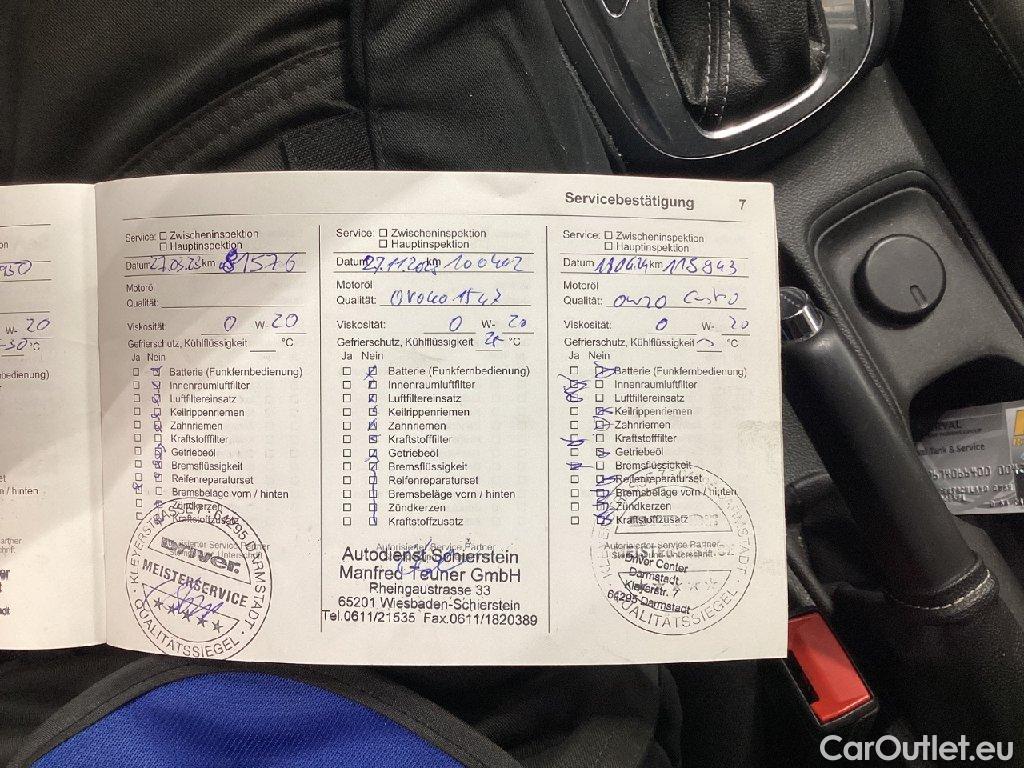 Servicebestätigung 7
Service: Zwischeninspektion
Hauptinspektion
Datum 27.03.23 km 81576
Motoröl
Qualität:
Viskosität: 0 W- 20
Gefrierschutz, Kühlflüssigkeit °C
Ja Nein
Batterie (Funkfernbedienung)
Innenraumluftfilter
Luftfiltereinsatz
Keilrippenriemen
Zahnriemen
Kraftstofffilter
Getriebeöl
Bremsflüssigkeit
Reifenreparaturset
Bremsbeläge vorn / hinten
Zündkerzen
Kraftstoffzusatz
Driver
MEISTERSERVICE
QUALITÄTSSIEGEL
Service: Zwischeninspektion
Hauptinspektion
Datum 27.11.2023 km 100402
Motoröl
Qualität:
Viskosität: 0 W- 20
Gefrierschutz, Kühlflüssigkeit °C
Ja Nein
Batterie (Funkfernbedienung)
Innenraumluftfilter
Luftfiltereinsatz
Keilrippenriemen
Zahnriemen
Kraftstofffilter
Getriebeöl
Bremsflüssigkeit
Reifenreparaturset
Bremsbeläge vorn / hinten
Zündkerzen
Kraftstoffzusatz
Autorisierter Service Partner
Autodienst Schierstein
Manfred Teuner GmbH
Rheingaustrasse 33
65201 Wiesbaden-Schierstein
Tel.0611/21535 Fax.0611/1820389
Service: Zwischeninspektion
Hauptinspektion
Datum km 115943
Motoröl
Qualität:
Viskosität: 0 W- 20
Gefrierschutz, Kühlflüssigkeit °C
Ja Nein
Batterie (Funkfernbedienung)
Innenraumluftfilter
Luftfiltereinsatz
Keilrippenriemen
Zahnriemen
Kraftstofffilter
Getriebeöl
Bremsflüssigkeit
Reifenreparaturset
Bremsbeläge vorn / hinten
Zündkerzen
Kraftstoffzusatz
Autorisierter Service Partner
Driver Center
Darmstadt
Kleyerstr. 7
64295 Darmstadt
QUALITÄTSSIEGEL
CarOutlet.eu